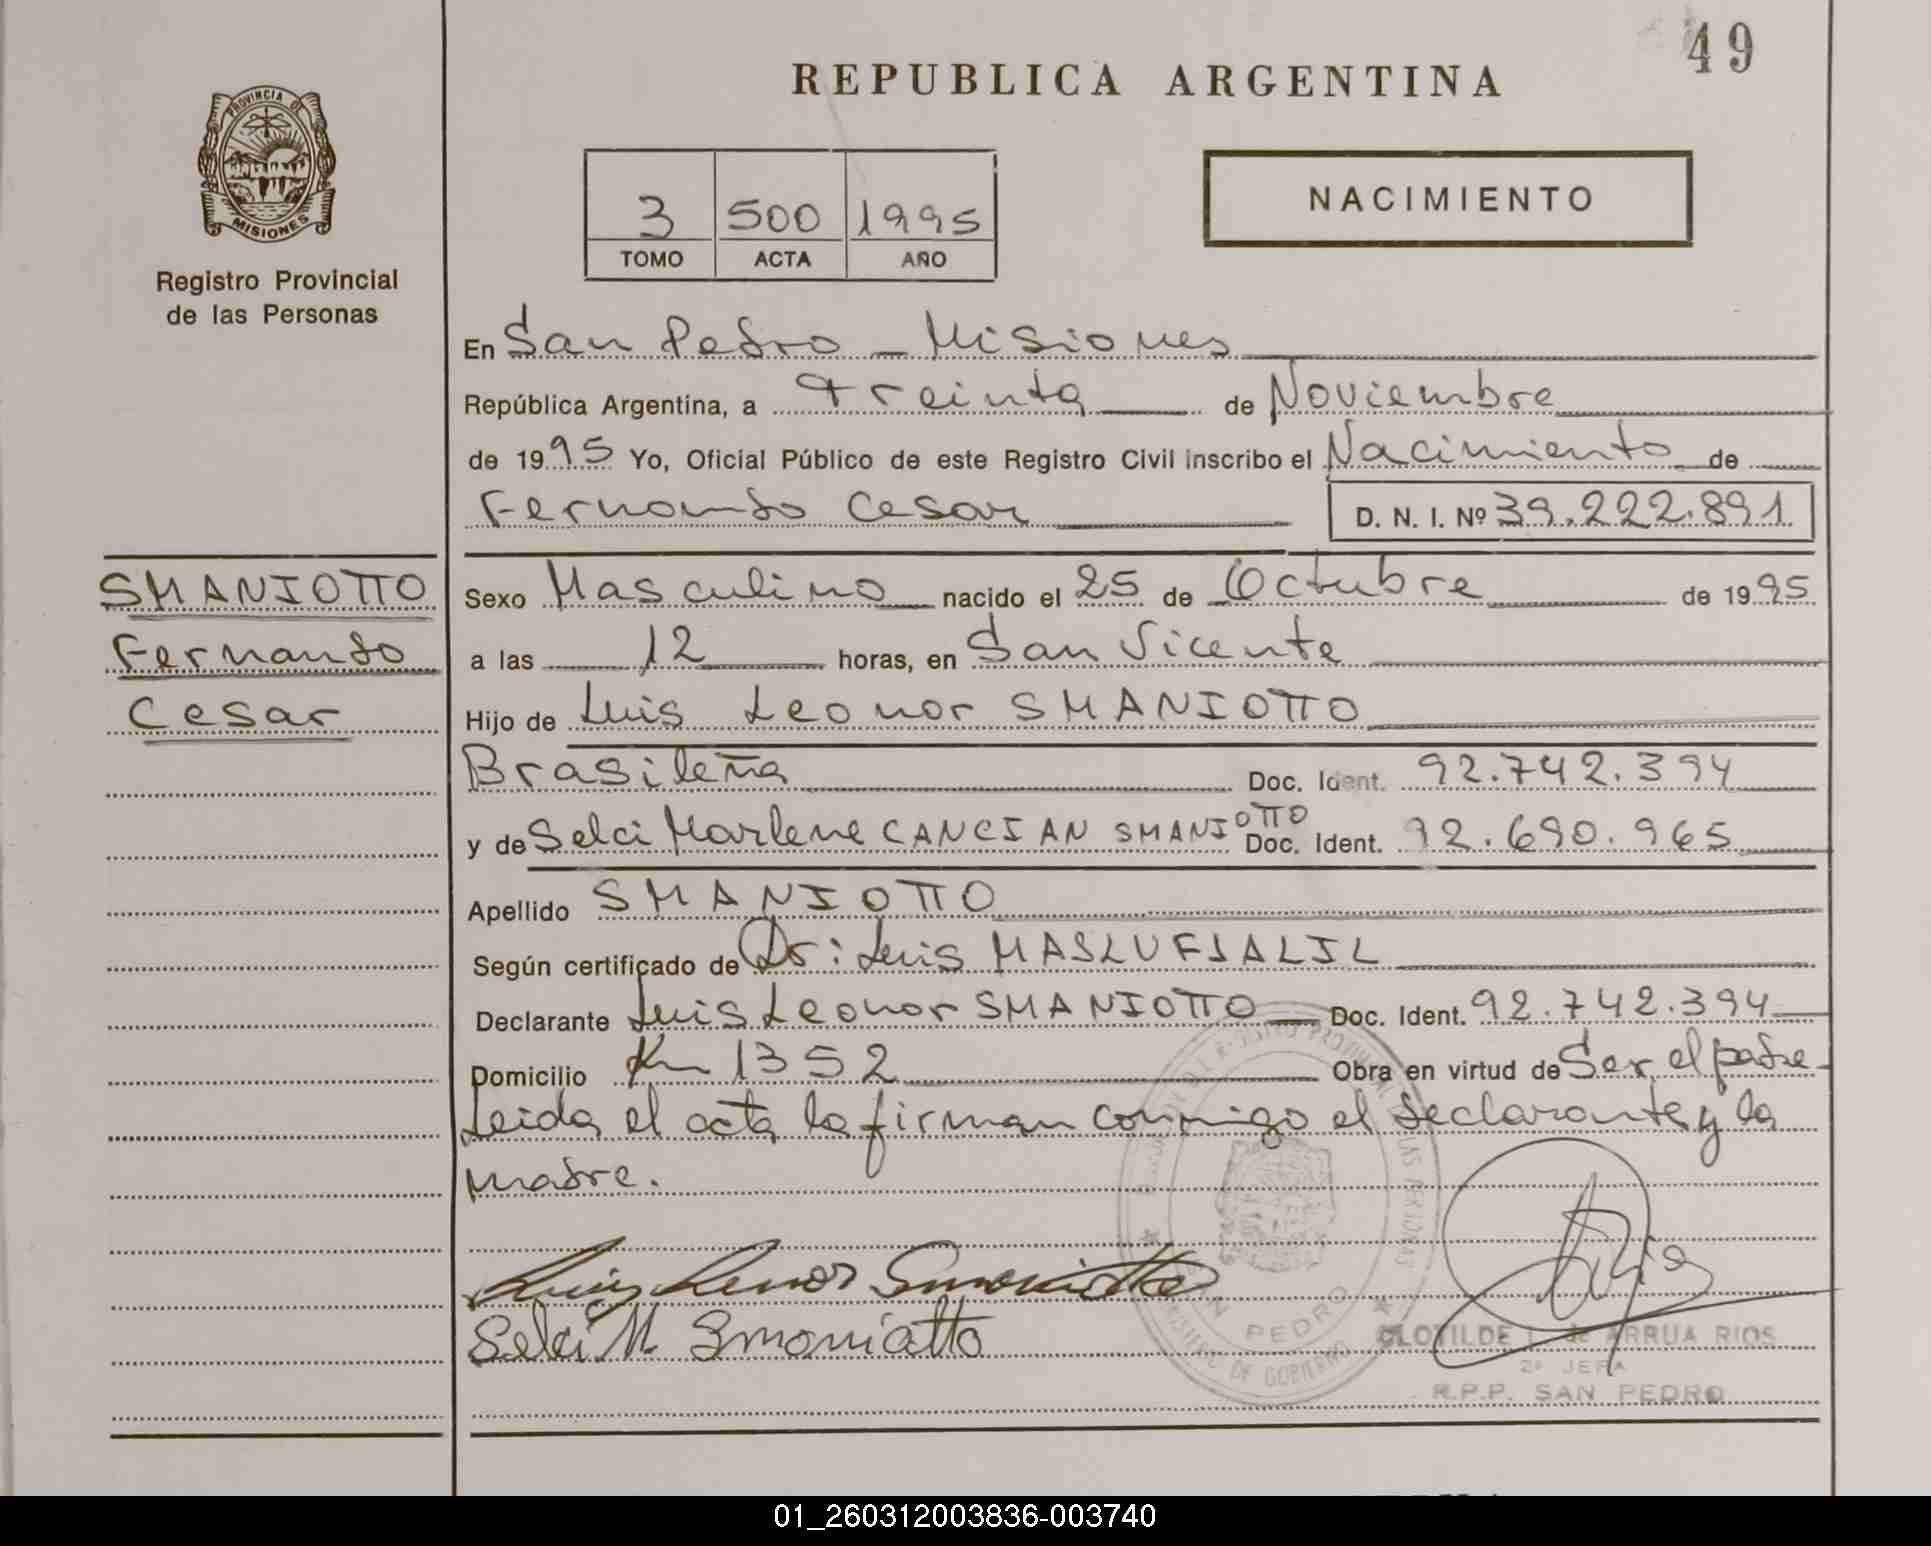 49
REPUBLICA ARGENTINA
PROVINCIA DE
MISIONES
Registro Provincial
de las Personas
3 500 1995
TOMO ACTA AÑO
NACIMIENTO
En San Pedro - Misiones
República Argentina, a treinta de Noviembre
de 1995 Yo, Oficial Público de este Registro Civil inscribo el Nacimiento de
Fernando Cesar D. N. I. Nº 39.222.891
SMANIOTTO
Fernando
Cesar
Sexo Masculino nacido el 25 de Octubre de 1995
a las 12 horas, en San Vicente
Hijo de Luis Leonor SMANIOTTO
Brasileña Doc. Ident. 92.742.394
y de Selci Marlene CANCIAN SMANIOTTO Doc. Ident. 92.690.965
Apellido SMANIOTTO
Según certificado de Dr: Luis MASLUFJALIL
Declarante Luis Leonor SMANIOTTO Doc. Ident. 92.742.394
Domicilio Km 1352 Obra en virtud de Ser el padre
Leida el acta la firman conmigo el declarante y la
madre.
Luiz Lenor Smaniotto
Selci M. Smaniotto
SAN PEDRO
MINISTERIO DE GOBIERNO
CLOTILDE L. de ARRUA RIOS
2º JEFA
R.P.P. SAN PEDRO
01_260312003836-003740